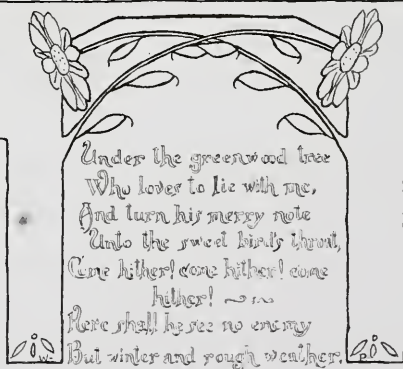 Under the greenwood tree
Who loves to lie with me,
And turn his merry note
Unto the sweet bird's throat,
Come hither! come hither! come
hither!
Here shall he see no enemy
But winter and rough weather.